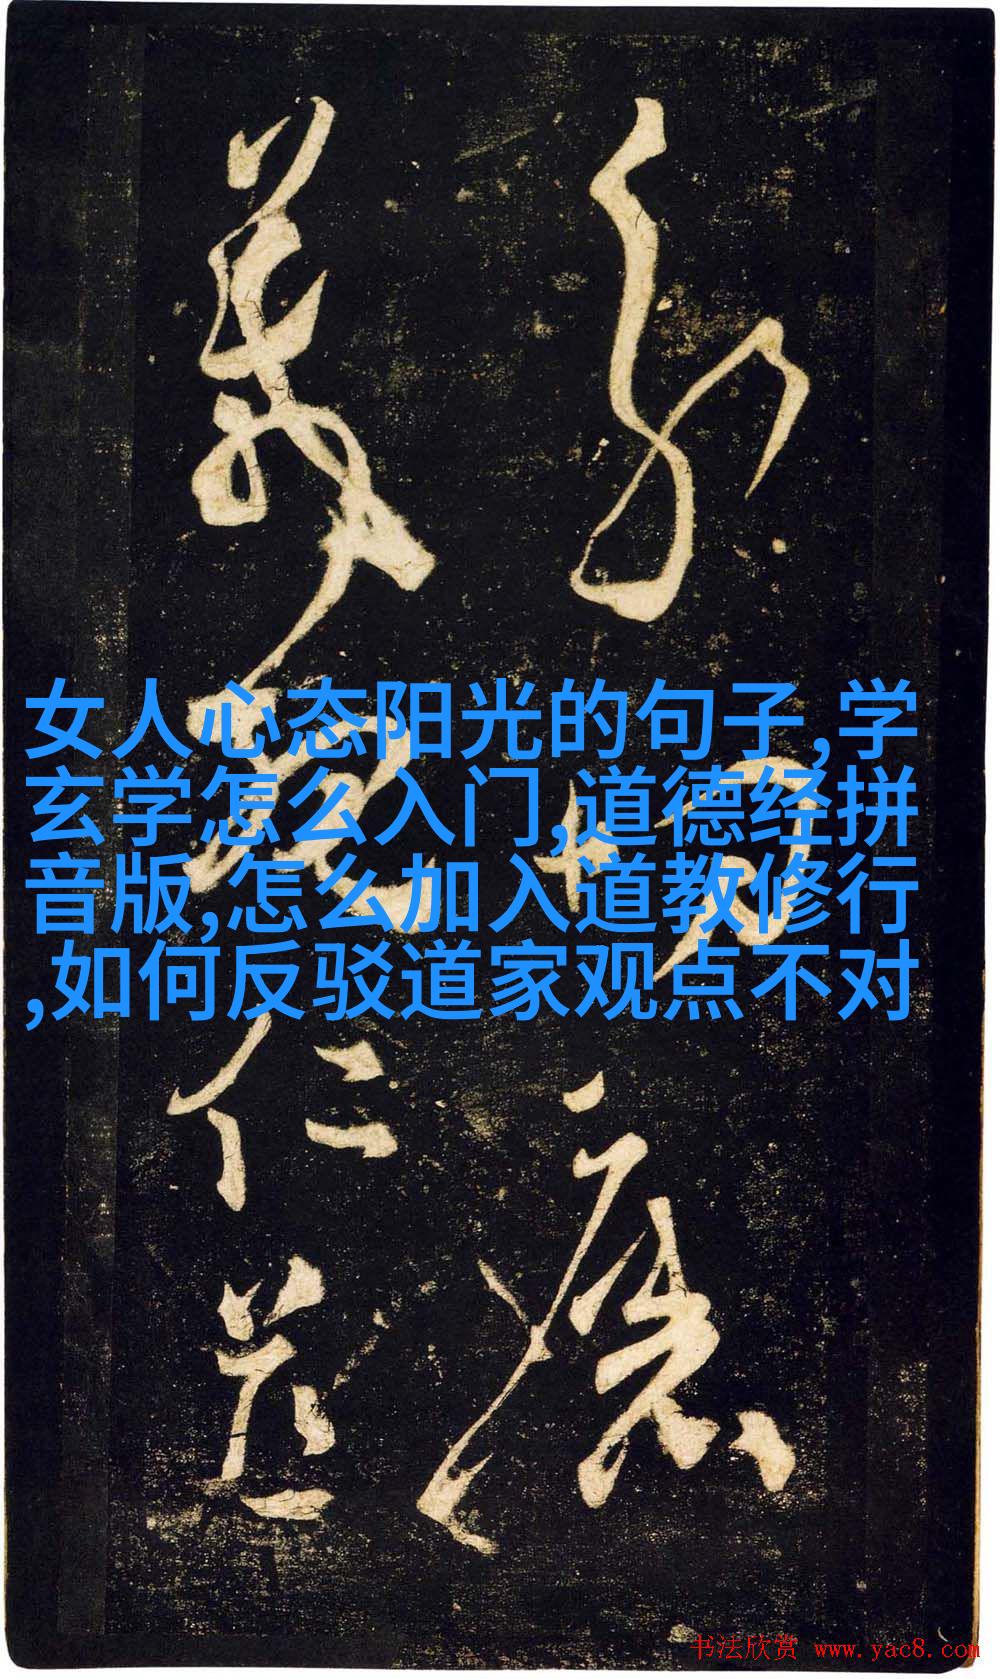 分切磨
箴規仁慈
女人心态阳光的句子,学
玄学怎么入门,道德经拼
音版,怎么加入道教修行
,如何反驳道家观点不对
书法欣赏 www.yac8.com